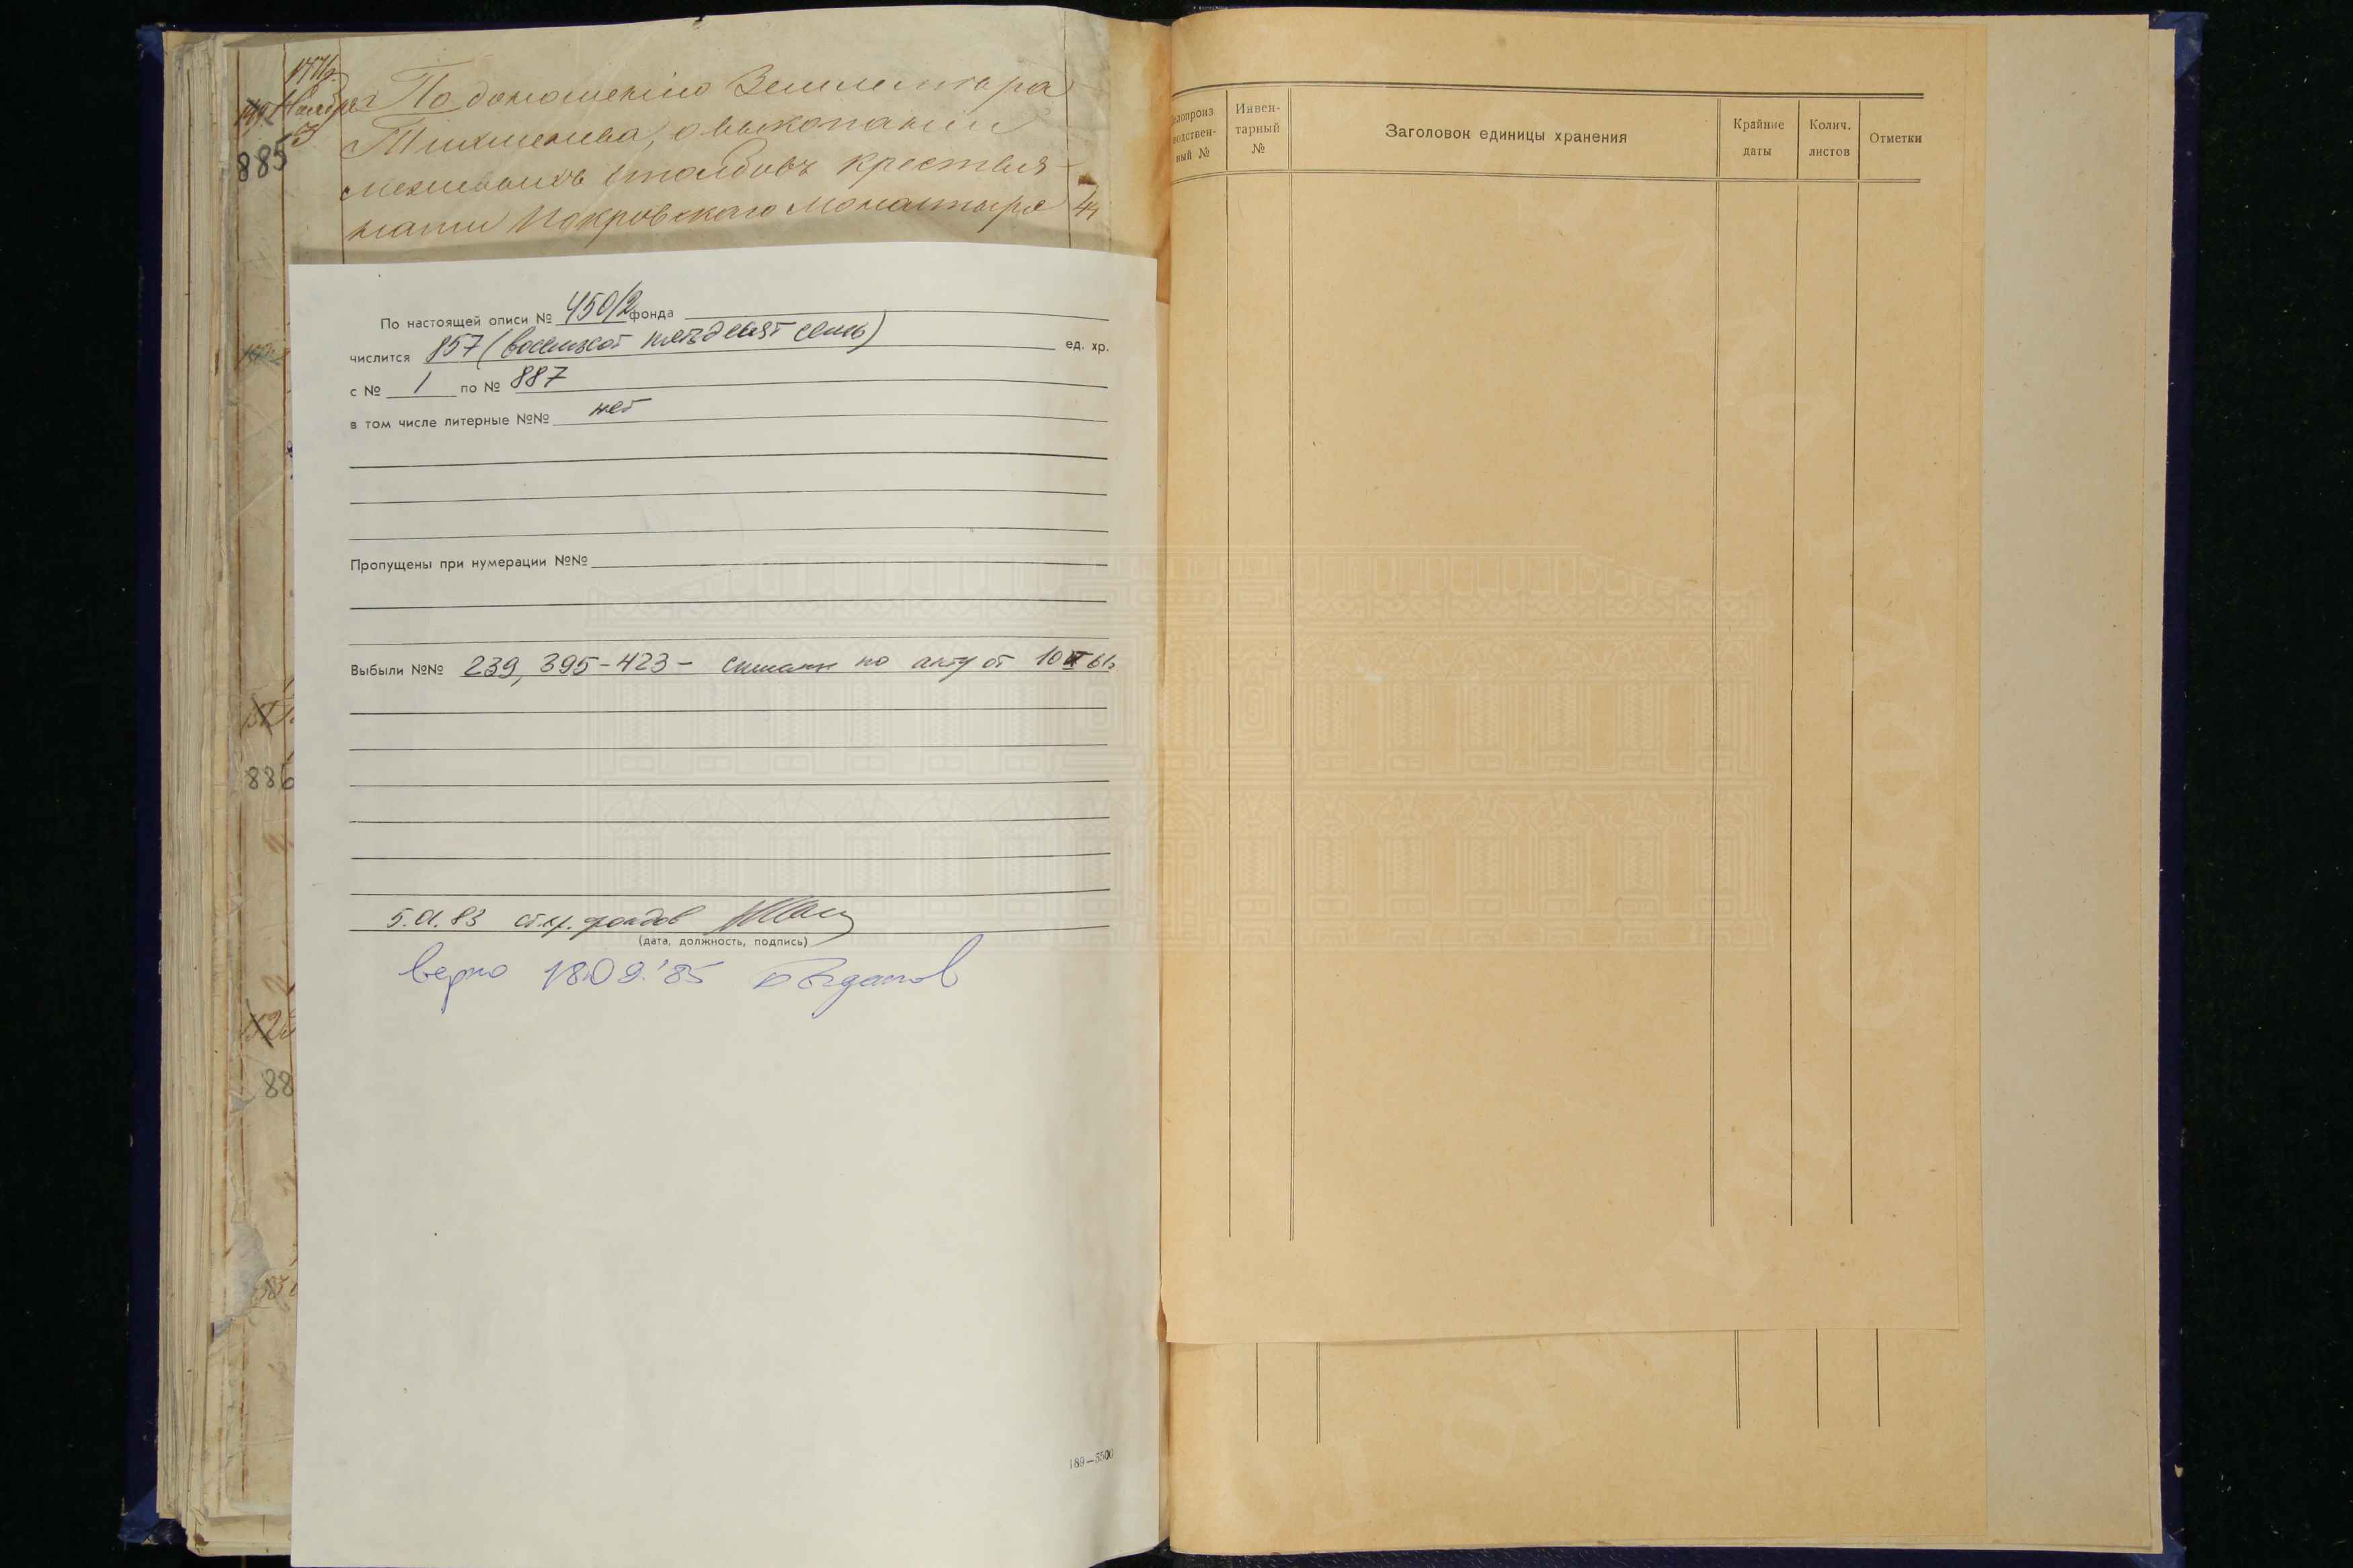 885
По доношенію Землемѣра
Тихменева, о выкопаніи
межевыхъ столбовъ крестья-
нами Покровскаго монастыря 44
По настоящей описи № 450/2 фонда
числится 857 (восемьсот пятьдесят семь) ед. хр.
с № 1 по № 887
в том числе литерные №№ нет
Пропущены при нумерации №№
Выбыли №№ 239, 395-423 - списаны по акту от 10
886
5. 83 ст. хр. фондов
(дата, должность, подпись)
верно 18.09.'85 Богданов
88
189—5500
делопроиз
водствен-
ный №
Инвен-
тарный
№
Заголовок единицы хранения
Крайние
даты
Колич.
листов
Отметки